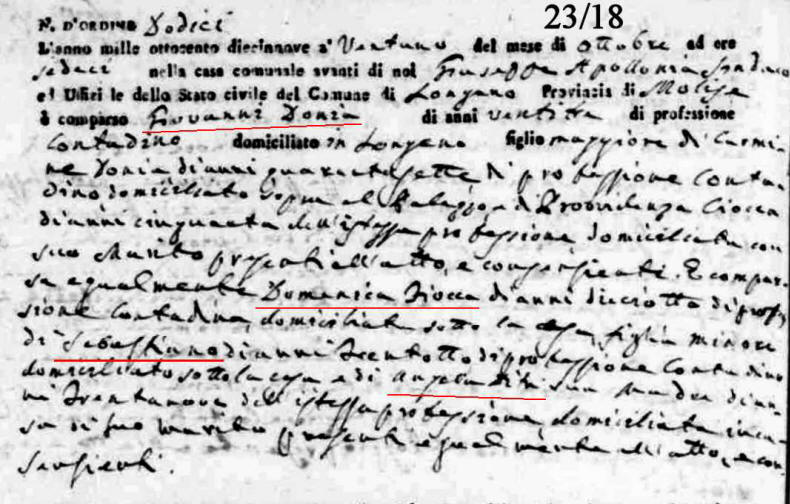 23/18
N. D'ORDINE Dodici
L'anno mille ottocento diecinnove a' Ventuno del mese di Ottobre ad ore
sedeci nella casa comunale avanti di noi Giuseppe Apollonia Sindaco
ed Uffizi le dello Stato civile del Comune di Longano Provinzia di Molise
è comparso Giovanni Donia di anni ventitre di professione
Contadino domiciliato in Longano figlio maggiore di Carmi
ne Donia di anni quarantasette di professione Conta
dino domiciliato sopra al Palazzo, e di Providenza Ciocca
di anni cinquanta dell'istessa professione domiciliata con
suo Marito presenti all'atto, e consenzienti. E compar
sa egualmente Domenica Ciocca di anni dieciotto di profes
sione Contadina, domiciliata sotto la casa, figlia minore
di Sebastiano di anni trentotto di professione Contadino
domiciliato sotto la casa e di Angela sua Madre di an
ni trentanove dell'istessa professione domiciliata in ca
sa di suo marito presenti egualmente all'atto, e con
senzienti.